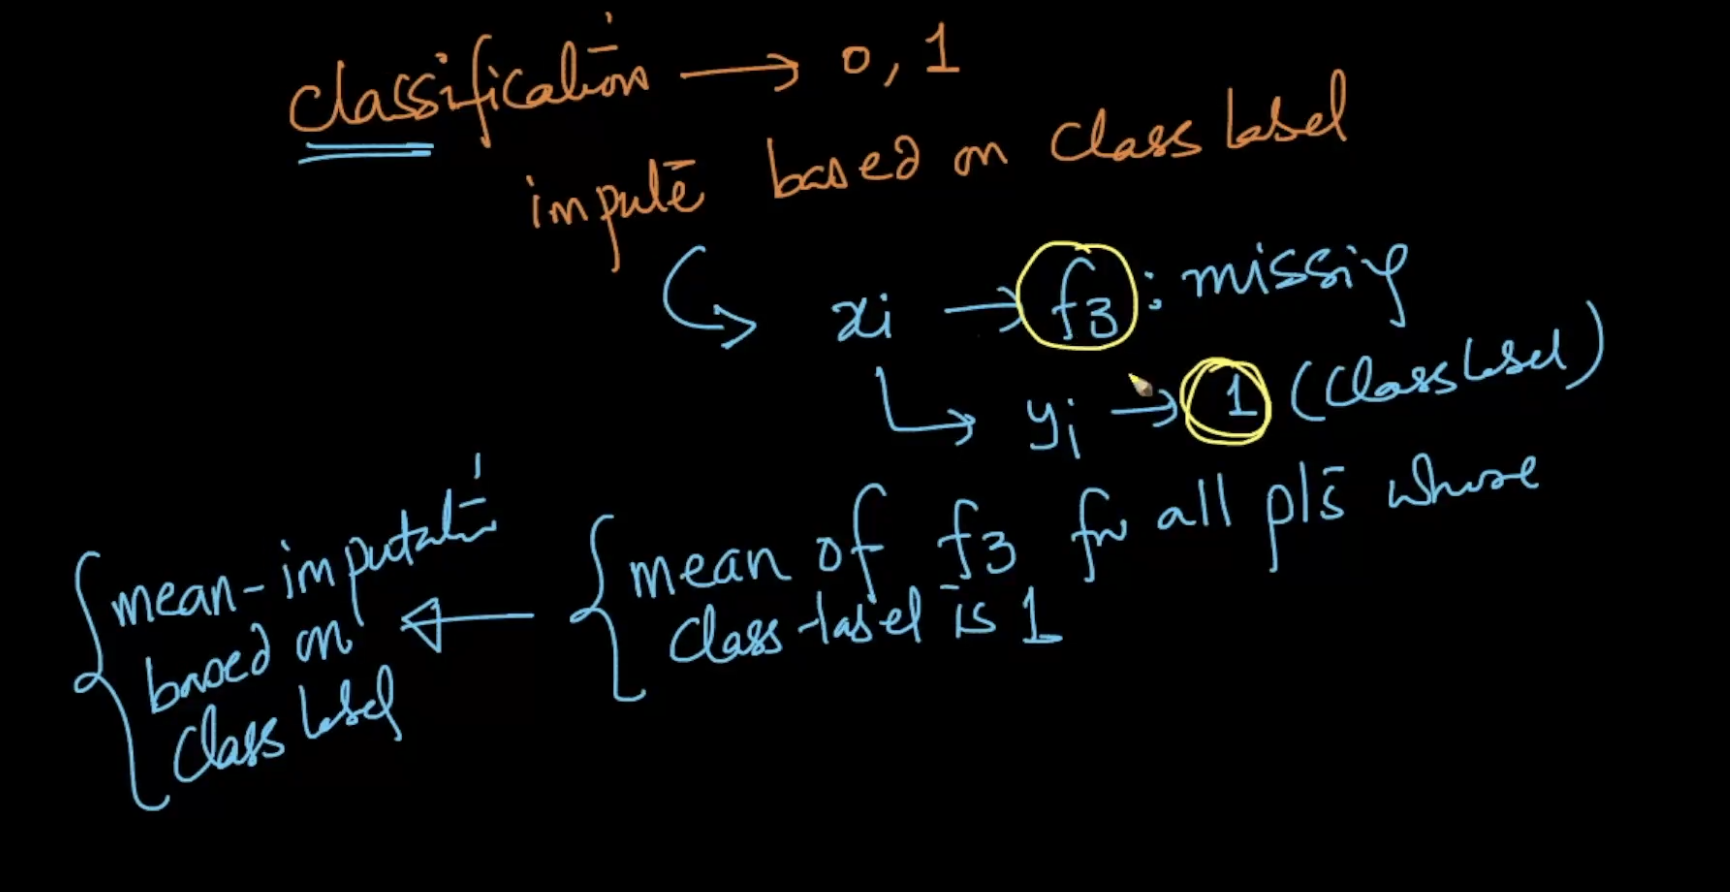 classification → 0, 1
impute based on class label
xi → f3 : missing
yi → 1 (class label)
mean of f3 for all pts whose
class-label is 1
mean-imputation
based on
class label